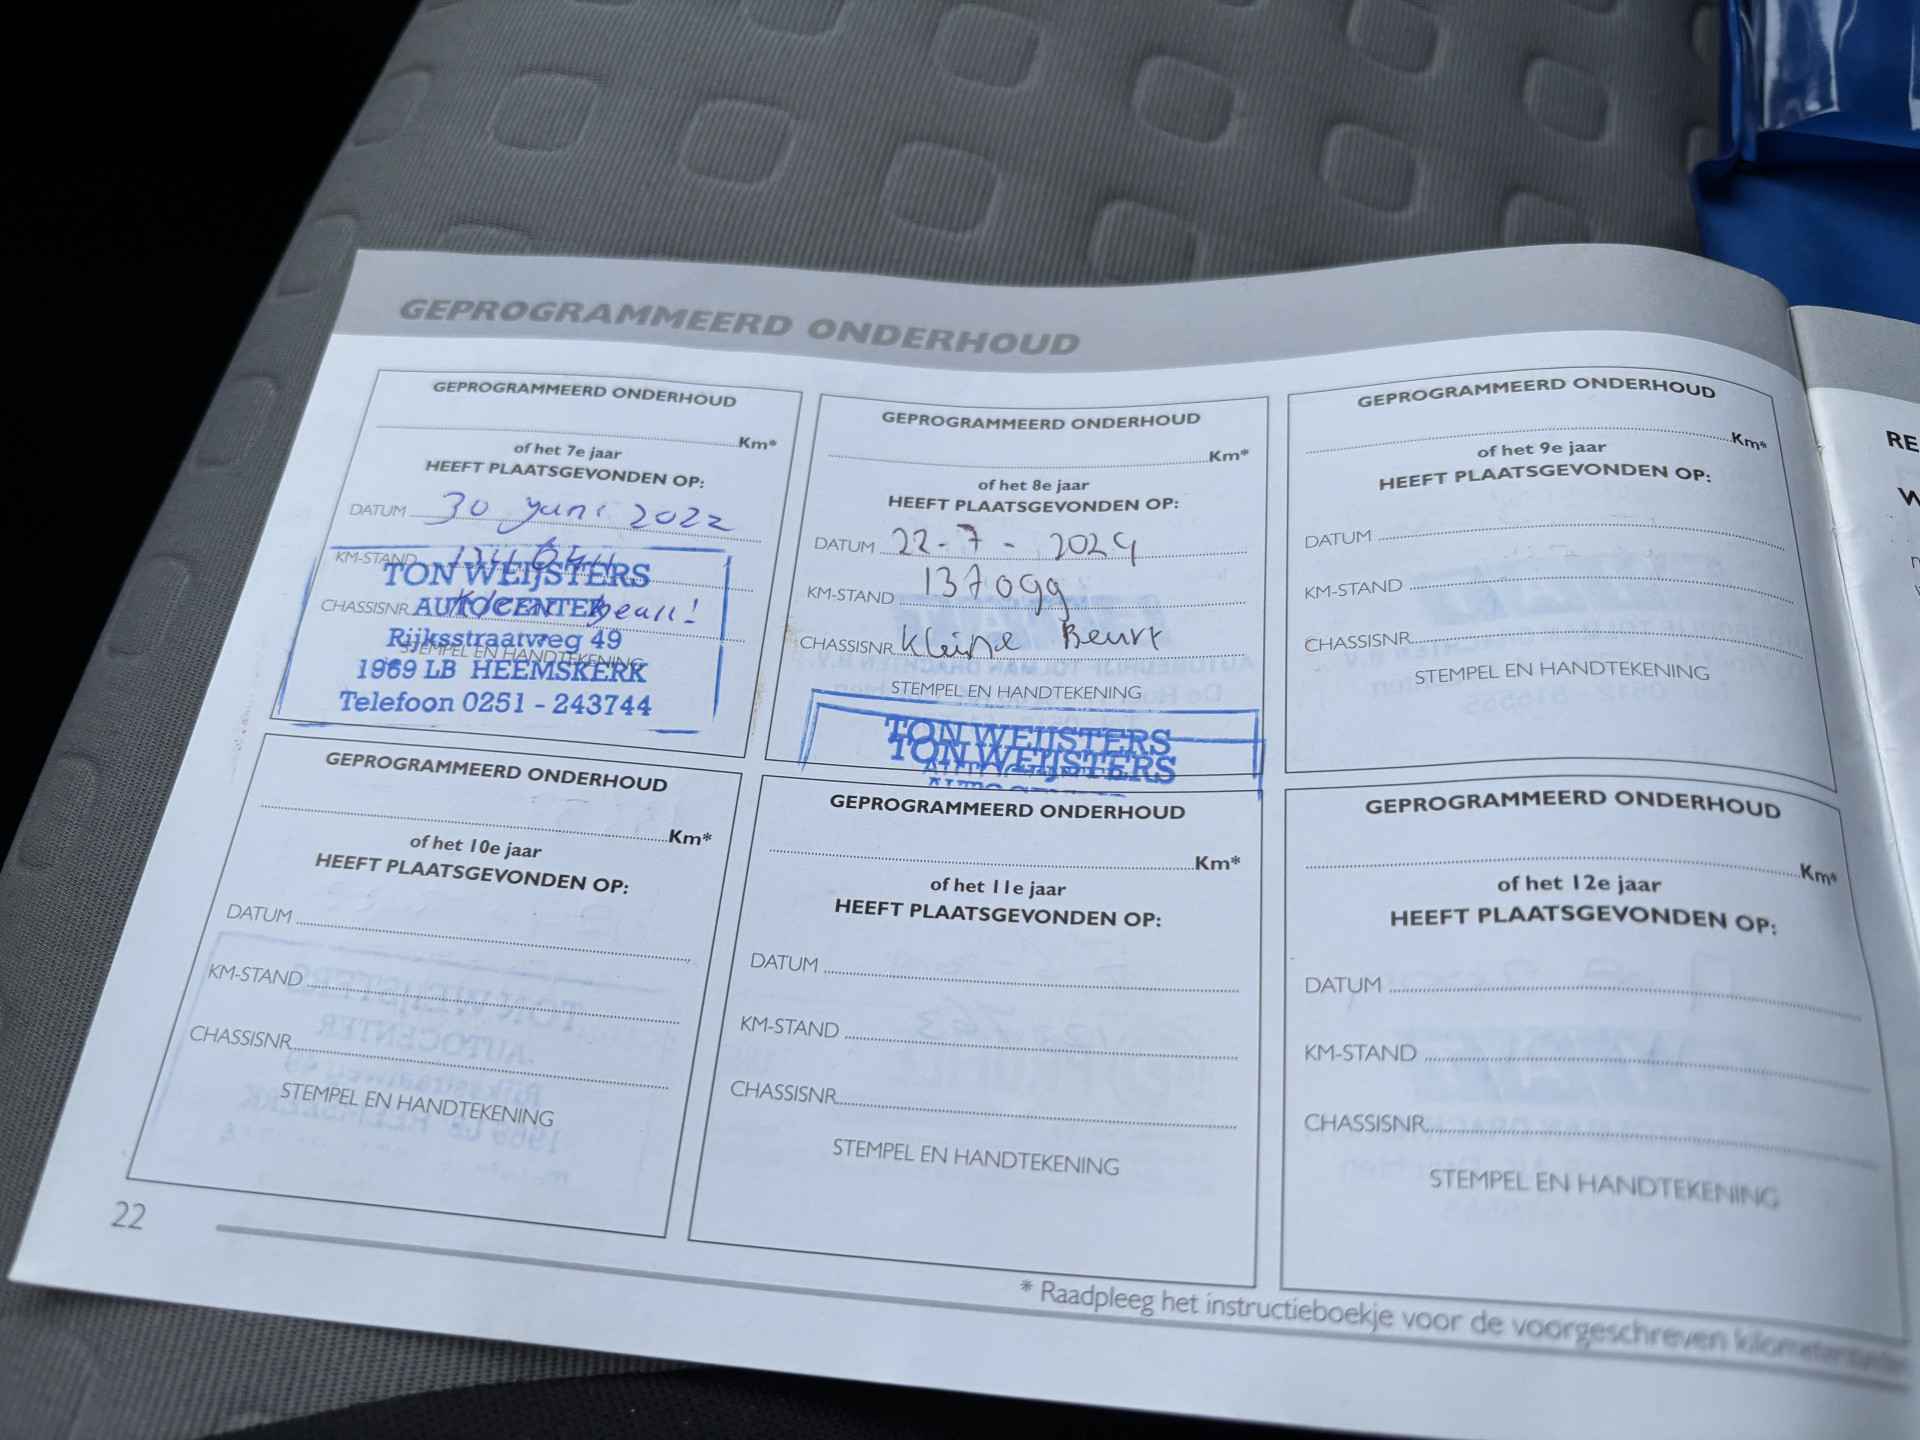 GEPROGRAMMEERD ONDERHOUD
GEPROGRAMMEERD ONDERHOUD
Km*
of het 7e jaar
HEEFT PLAATSGEVONDEN OP:
DATUM 30 juni 2022
KM-STAND
CHASSISNR
STEMPEL EN HANDTEKENING
TON WEIJSTERS
AUTOCENTER
Rijksstraatweg 49
1969 LB HEEMSKERK
Telefoon 0251 - 243744
GEPROGRAMMEERD ONDERHOUD
Km*
of het 8e jaar
HEEFT PLAATSGEVONDEN OP:
DATUM 22-7-2024
KM-STAND 137099
CHASSISNR Kleine Beurt
STEMPEL EN HANDTEKENING
TON WEIJSTERS
TON WEIJSTERS
GEPROGRAMMEERD ONDERHOUD
Km*
of het 9e jaar
HEEFT PLAATSGEVONDEN OP:
DATUM
KM-STAND
CHASSISNR
STEMPEL EN HANDTEKENING
GEPROGRAMMEERD ONDERHOUD
Km*
of het 10e jaar
HEEFT PLAATSGEVONDEN OP:
DATUM
KM-STAND
CHASSISNR
STEMPEL EN HANDTEKENING
GEPROGRAMMEERD ONDERHOUD
Km*
of het 11e jaar
HEEFT PLAATSGEVONDEN OP:
DATUM
KM-STAND
CHASSISNR
STEMPEL EN HANDTEKENING
GEPROGRAMMEERD ONDERHOUD
Km*
of het 12e jaar
HEEFT PLAATSGEVONDEN OP:
DATUM
KM-STAND
CHASSISNR
STEMPEL EN HANDTEKENING
22
* Raadpleeg het instructieboekje voor de voorgeschreven
RE